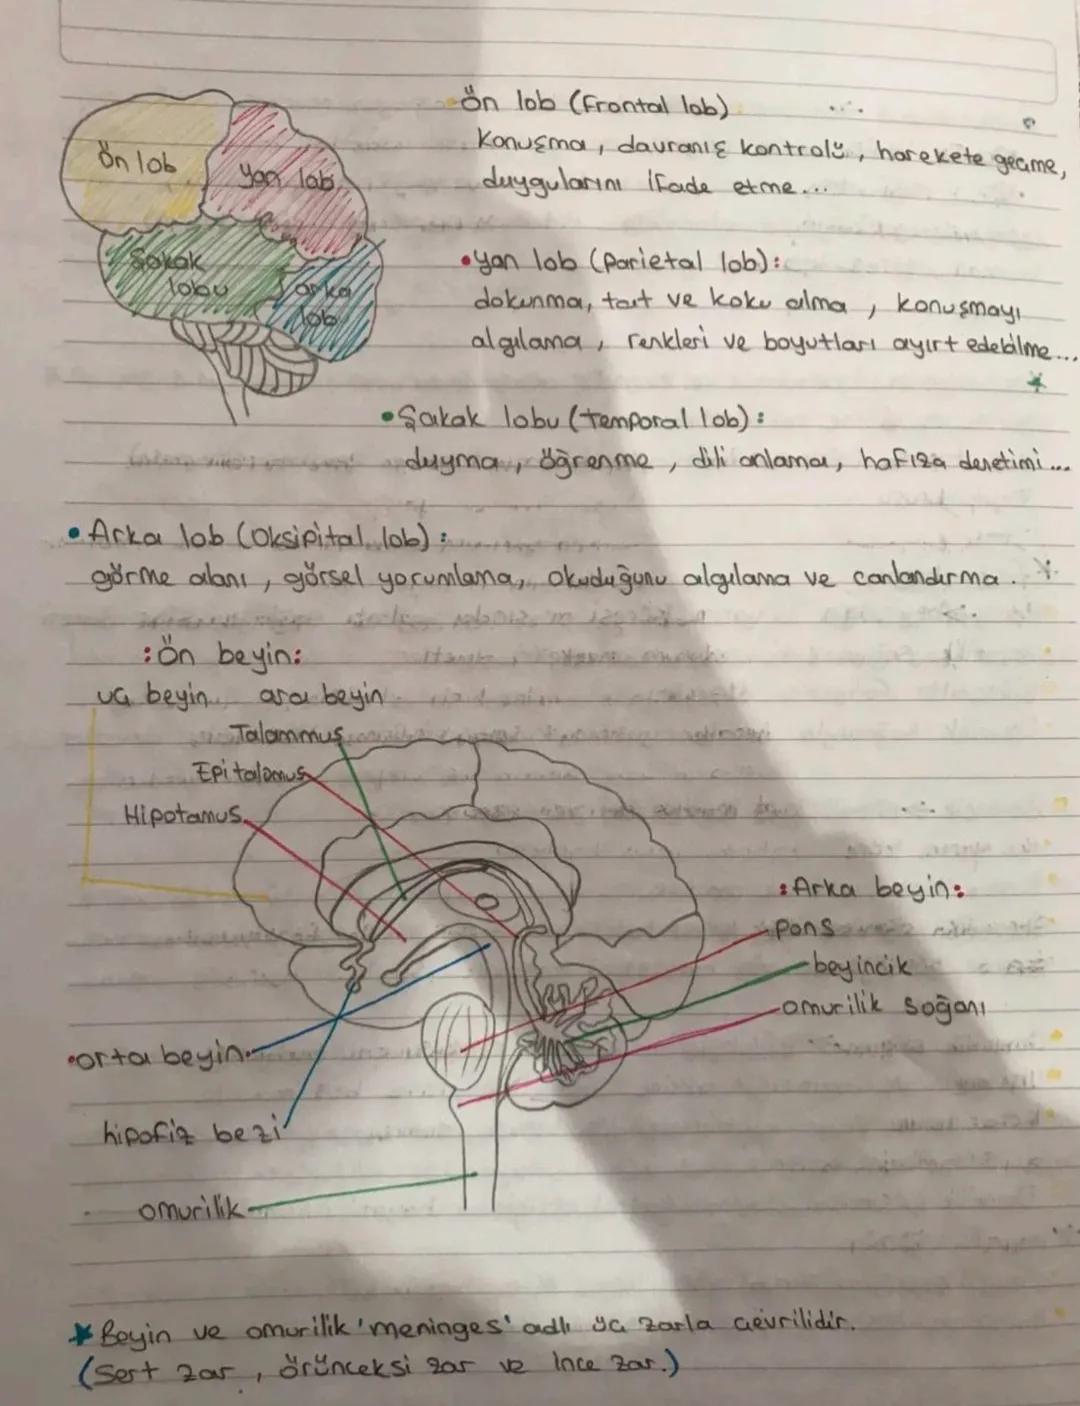 Ön lob
Yan lob
Şakak
lobu
arka
lob
Ön lob (Frontal lob)
Konuşma, davranış kontrolü, harekete geçme,
duygularını ifade etme...
•Yan lob (Parietal lob):
dokunma, tat ve koku alma, konuşmayı
algılama, renkleri ve boyutları ayırt edebilme...
•Şakak lobu (temporal lob):
duyma, öğrenme, dili anlama, hafıza denetimi...
•Arka lob (Oksipital lob):
görme alanı, görsel yorumlama, okuduğunu algılama ve canlandırma.
:Ön beyin:
uç beyin ara beyin
Talammus
Epitalamus
Hipotamus
:Arka beyin:
pons
beyincik
omurilik soğanı
•orta beyin
hipofiz bezi
omurilik
*Beyin ve omurilik 'meninges' adlı üç zarla çevrilidir.
(Sert zar, örünceksi zar ve ince zar.)